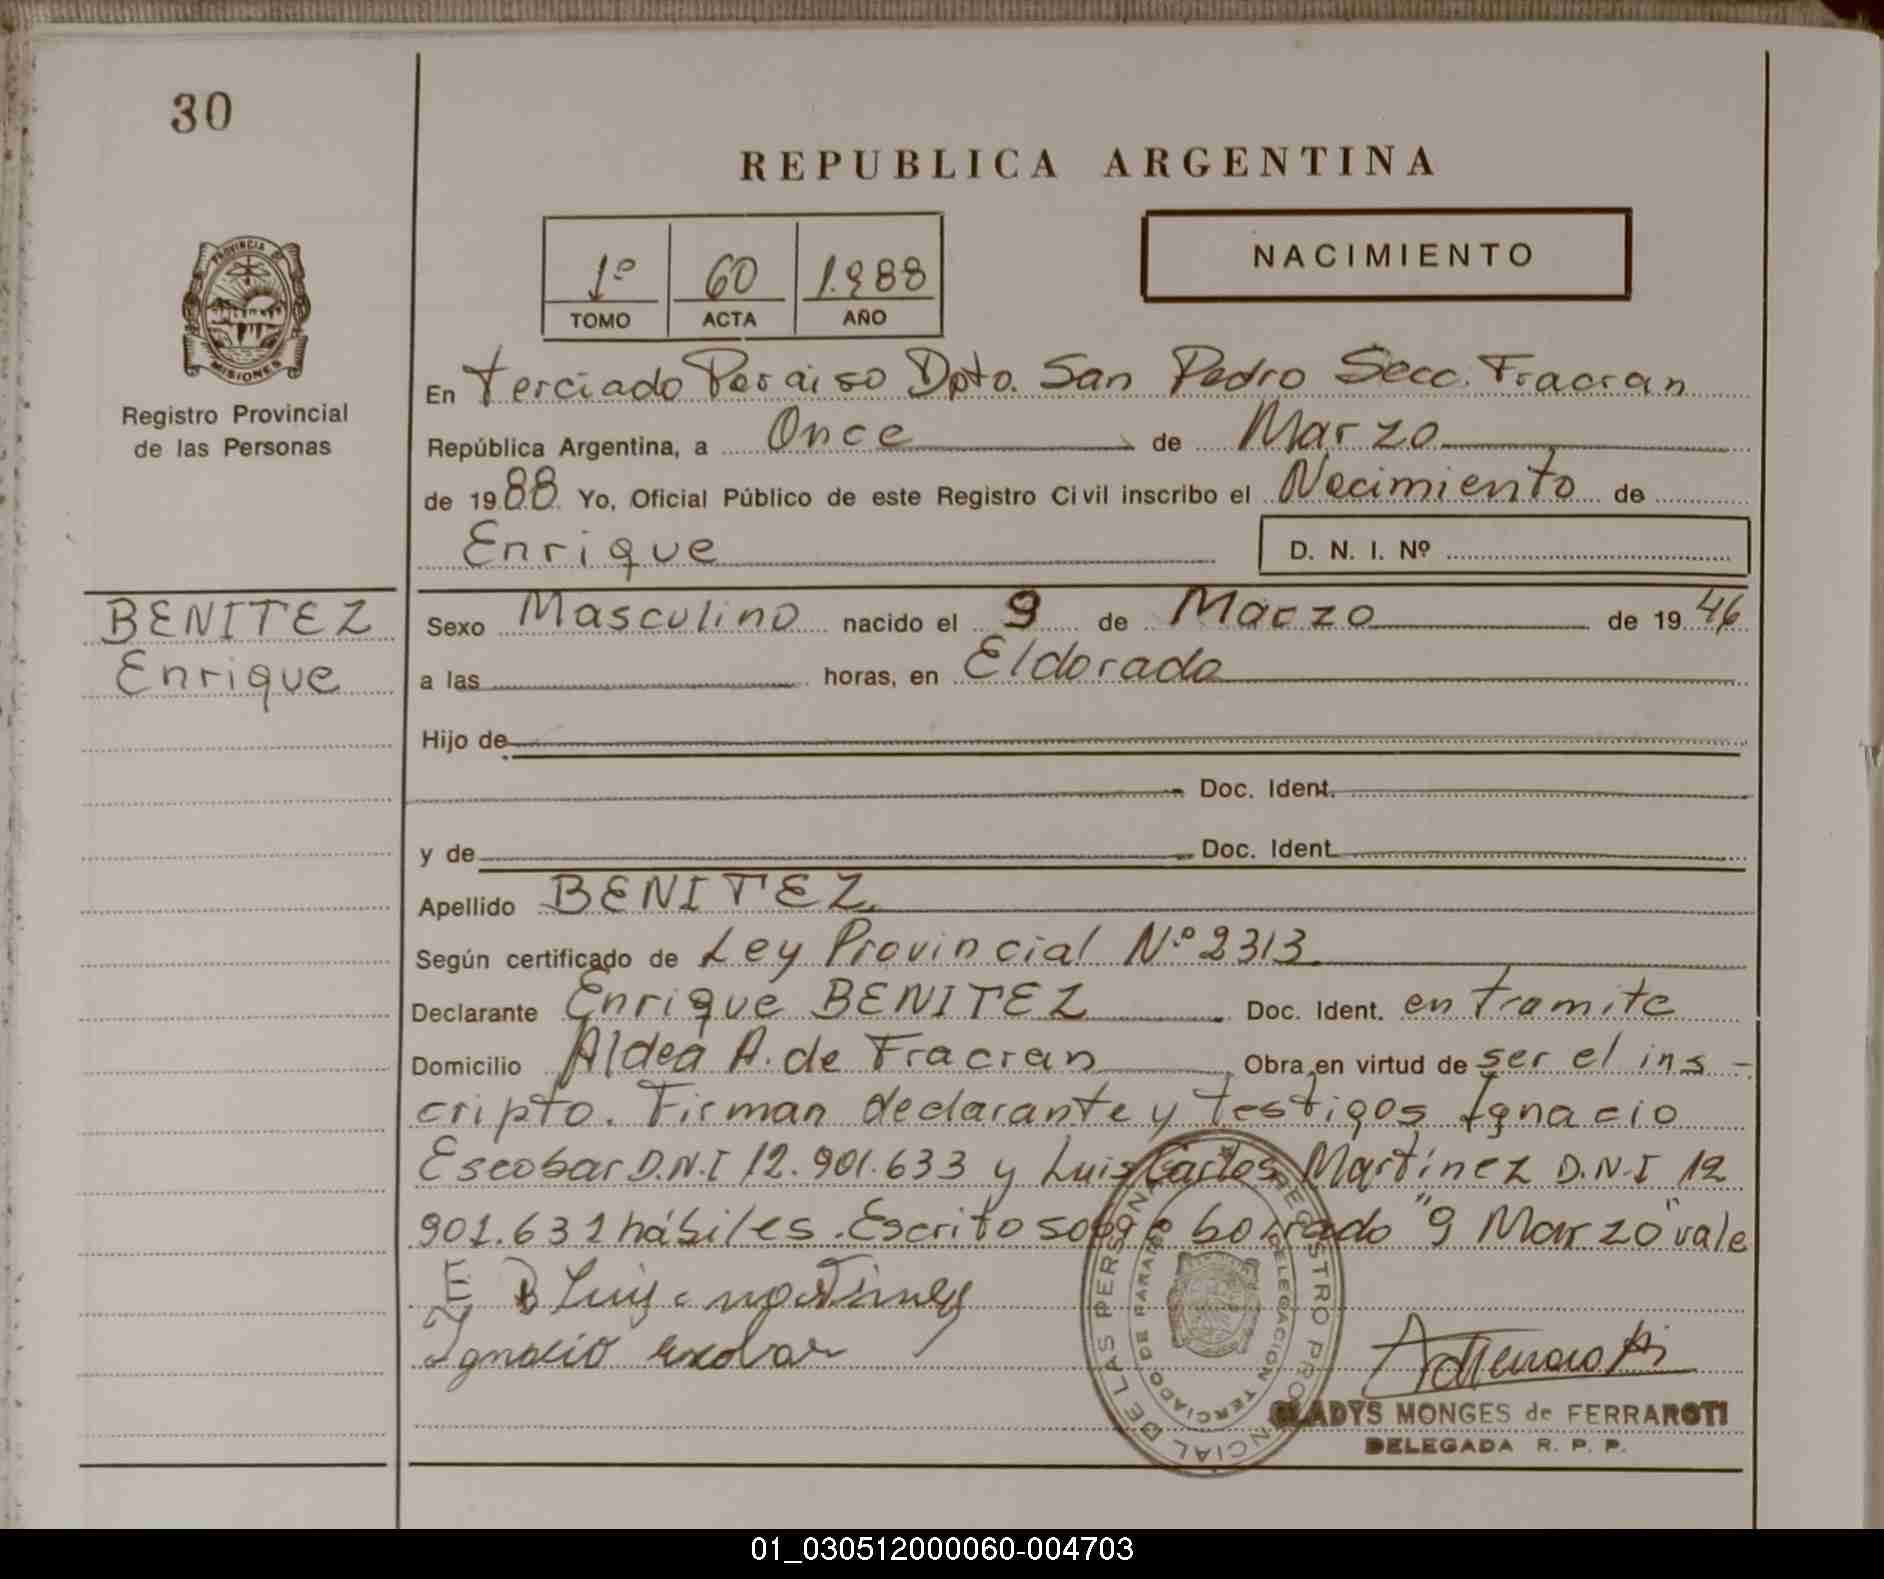 30
REPUBLICA ARGENTINA
PROVINCIA D
MISIONES
Registro Provincial
de las Personas
1º 60 1.988
TOMO ACTA AÑO
NACIMIENTO
En Terciado Paraiso Dpto. San Pedro Secc. Fracran
República Argentina, a Once de Marzo
de 19 88 Yo, Oficial Público de este Registro Civil inscribo el Nacimiento de
Enrique D. N. I. Nº
BENITEZ
Enrique
Sexo Masculino nacido el 9 de Marzo de 19 46
a las horas, en Eldorado
Hijo de
Doc. Ident.
y de Doc. Ident.
Apellido BENITEZ
Según certificado de Ley Provincial N.º 2313
Declarante Enrique BENITEZ Doc. Ident. en tramite
Domicilio Aldea A. de Fracran Obra en virtud de ser el ins-
cripto. Firman declarante y testigos Ignacio
Escobar D.N.I 12.901.633 y Luis Carlos Martinez D.N.I 12
901.631 hábiles. Escrito sobre borrado "9 Marzo" vale
E B Luis c martinez
Ignacio escobar
REGISTRO PROVINCIAL DE LAS PERSONAS
DELEGACION TERCIADO DE PARAISO
GLADYS MONGES de FERRAROTI
DELEGADA R. P. P.
01_030512000060-004703